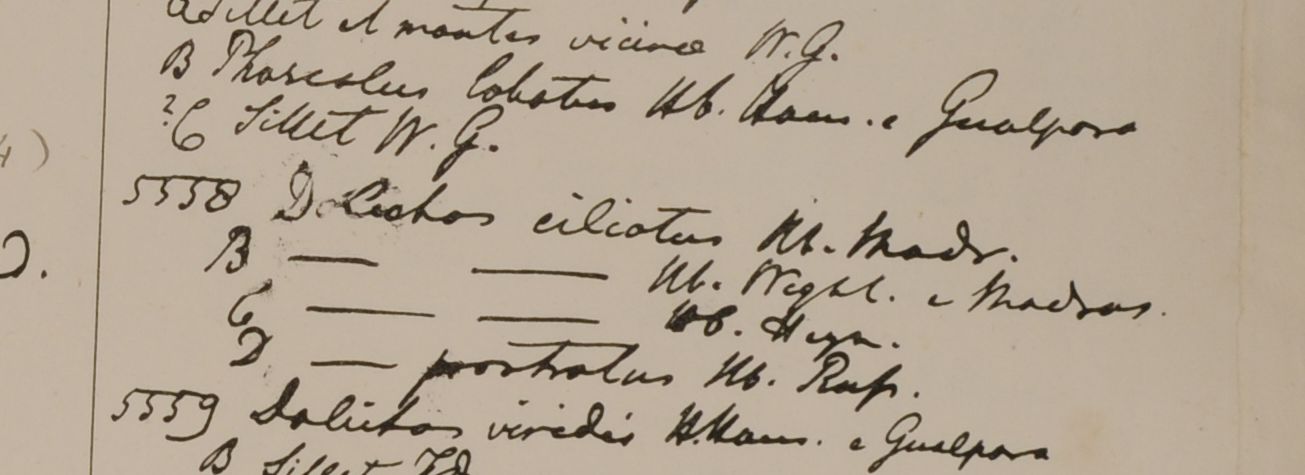 Sillet et montes vicinae W.G.
B Phaseolus lobatus Hb. Ham. e Gualpara
?C Sillet W. G.
4)
5558 Dolichos ciliatus Hb. Madr.
B — — Hb. Wight. e Madras.
C — — Hb. Heyn.
D — prostratus Hb. Russ.
5559 Dolichos viridis H.Ham. e Gualpara
B Sillet